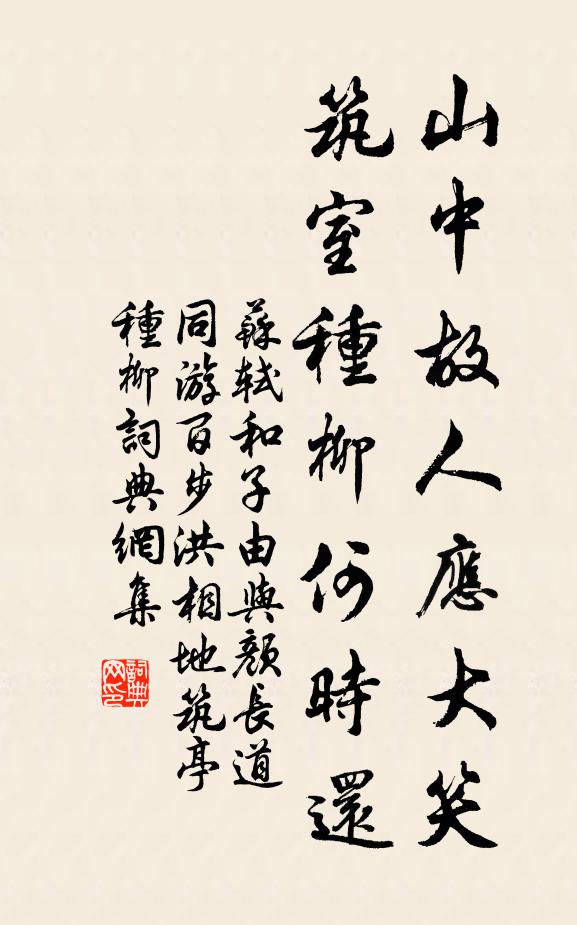 山中故人應大笑
筑室種柳何時還
蘇軾和子由與顏長道
同游百步洪相地筑亭
種柳詞典網集
詞典网印